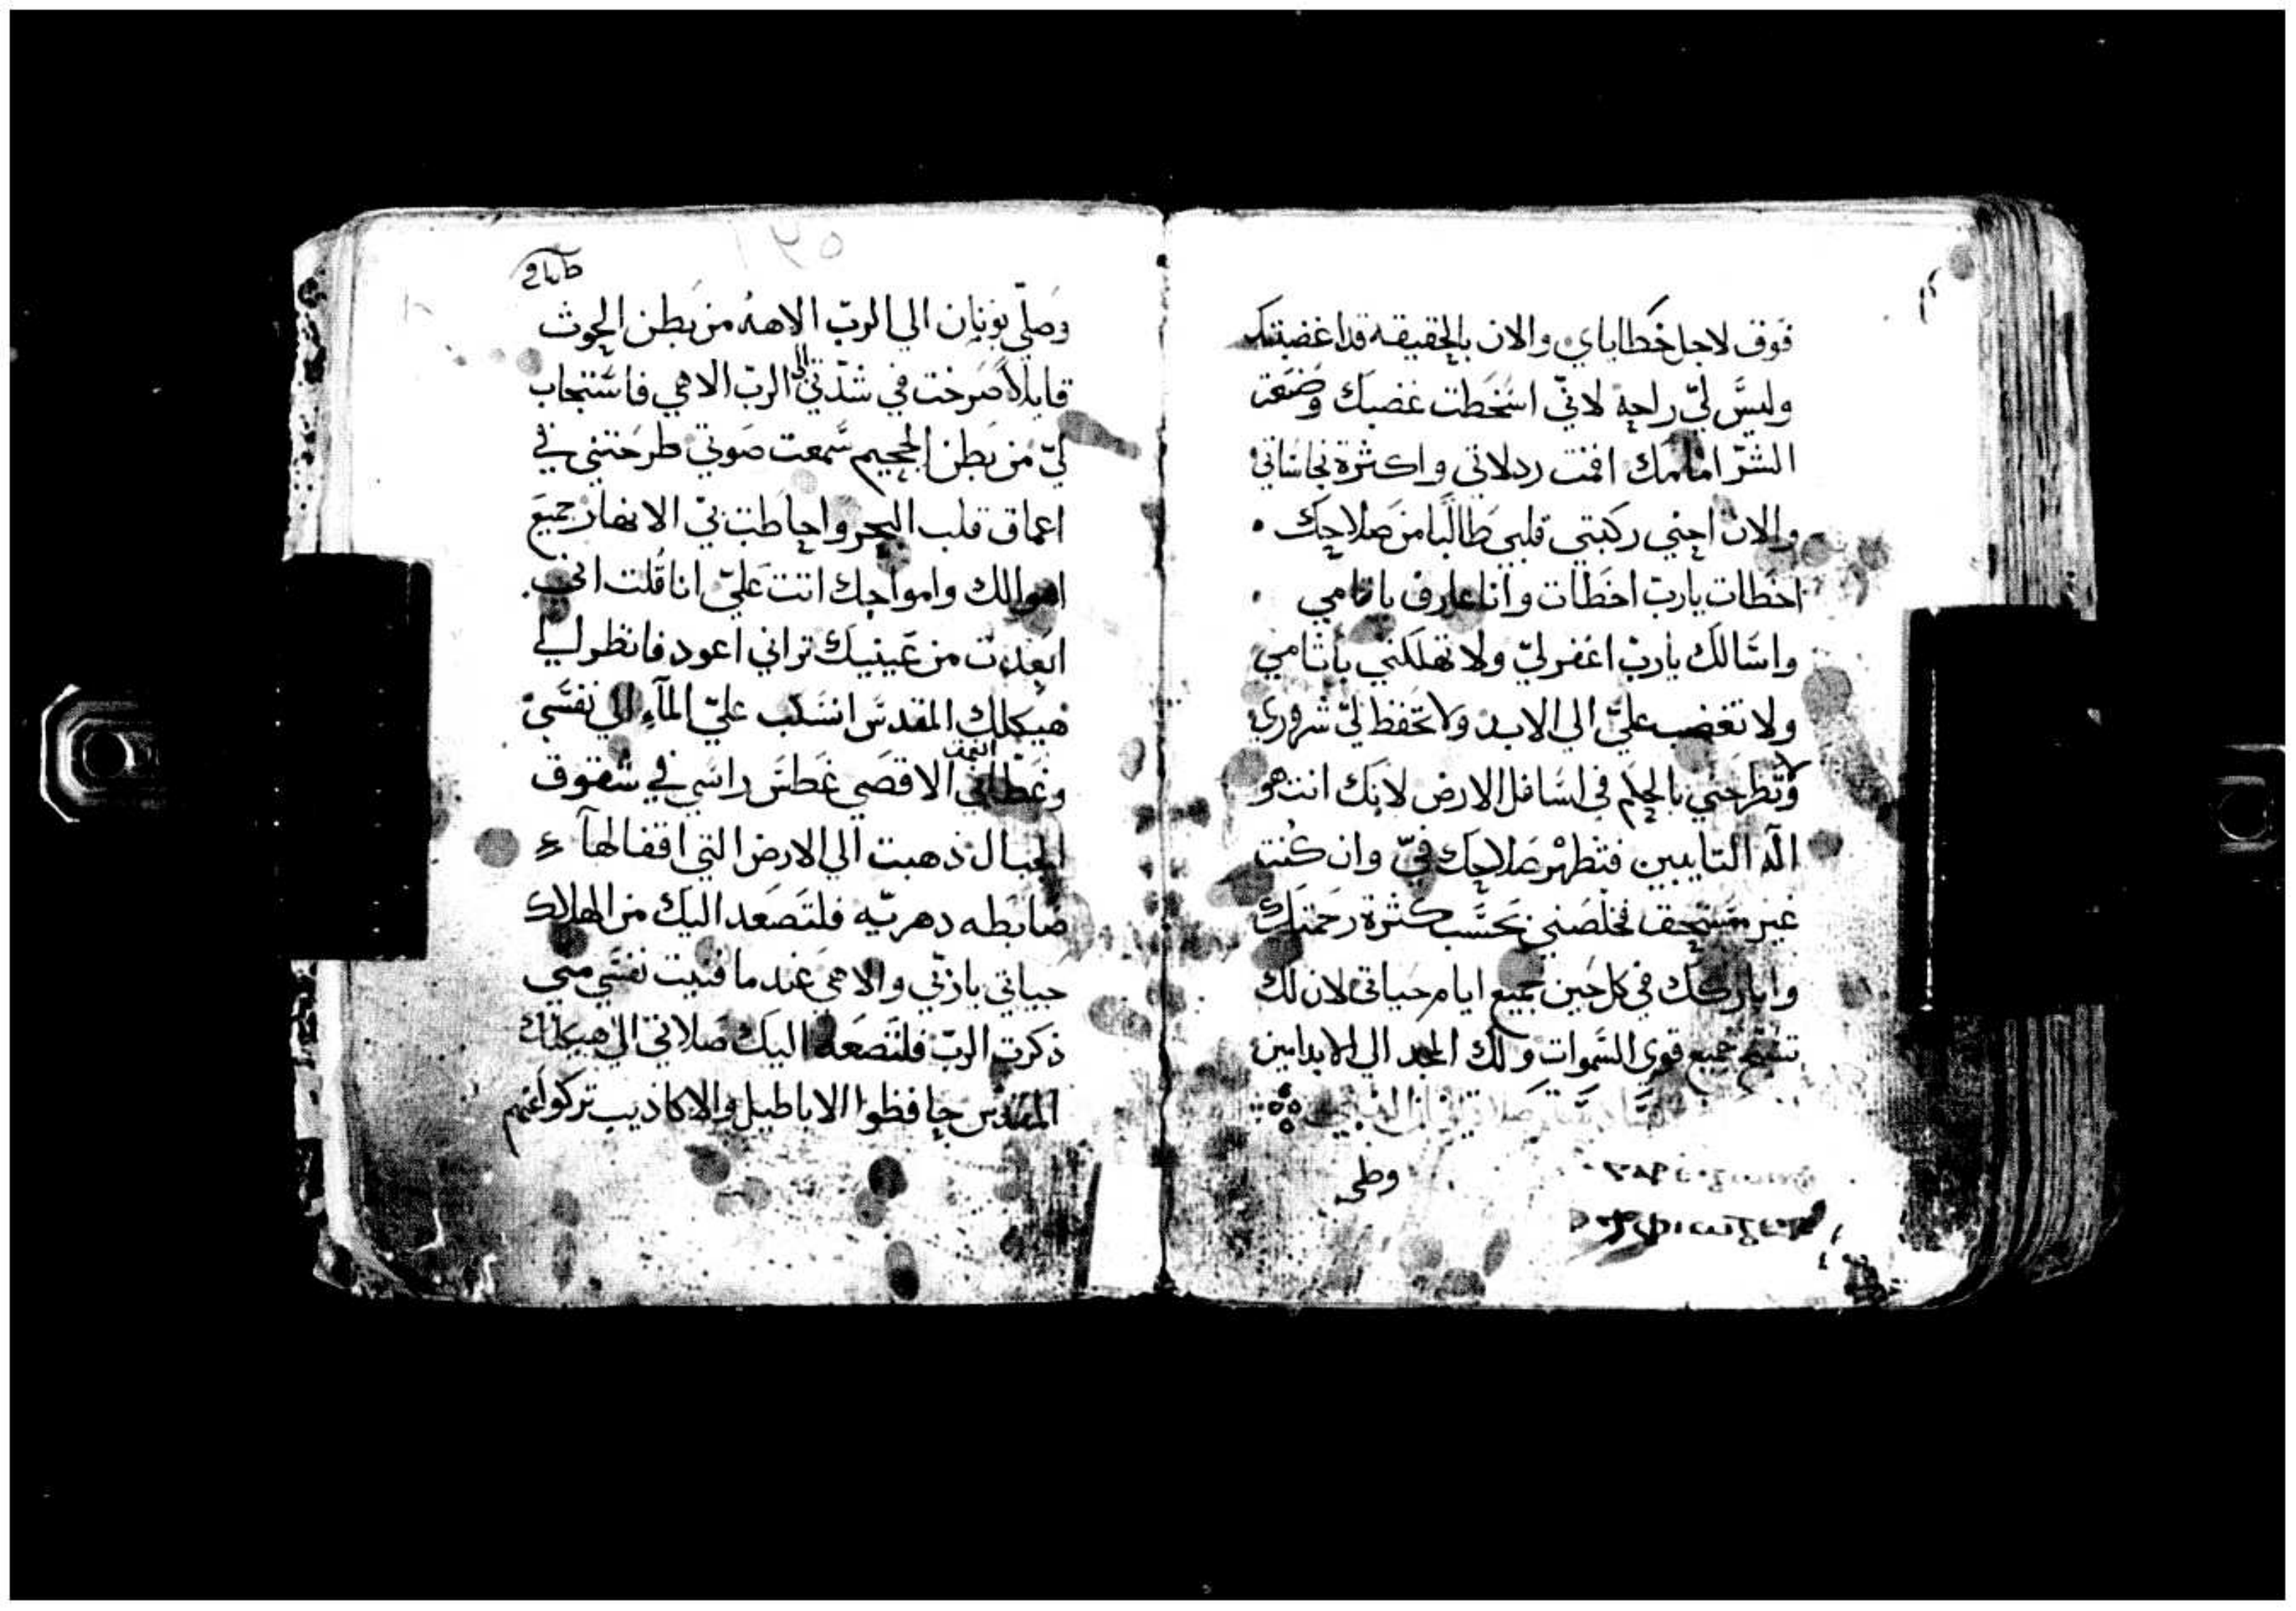 فوق لاجل خطاياي والان بالحقيقه قد اغضبتك
وليس لي راحة لاني اسخطت غضبك وصنعت
الشر امامك اقمت ردلاتي واكثرة نجاساتي
والان احني ركبتي قلبي طالبا من صلاحك •
اخطات يارب اخطات وانا عارف باثامي •
واسالك يارب اغفر لي ولا تهلكني باثامي
ولا تغضب علي الى الابد ولا تحفظ لي شروري
ولا تطرحني بالحكم في اسافل الارض لانك انت هو
اله التايبين فتظهر صلاحك في وان كنت
غير مستحق فخلصني بحسب كثرة رحمتك
واباركك في كل حين جميع ايام حياتي لان لك
تسبح جميع قوي السموات ولك المجد الي الابد امين
صلاة يونان النبي
وصلي
١٣٥
وصلي يونان الي الرب الاهه من بطن الحوث
قايلا صرخت في شدتي الى الرب الاهي فاستجاب
لي من بطن الجحيم سمعت صوتي طرحتني في
اعماق قلب البحر واحاطت بي الانهار جميع
اهوالك وامواجك اتت علي انا قلت اني
ابعدت من عينيك تراني اعود فانظر لي
هيكلك المقدس انسكب علي المآء الي نفسي
وغطاني الاقصي غطس راسي في شقوق
الجبال ذهبت الي الارض التي اقفالها
ضابطه دهريه فلتصعد اليك من الهلاك
حياتي ياربي والاهي عندما فنيت نفسي مني
ذكرت الرب فلتصعد اليك صلاتي الي هيكلك
المقدس حافظوا الاباطيل والاكاذيب تركوا عنهم